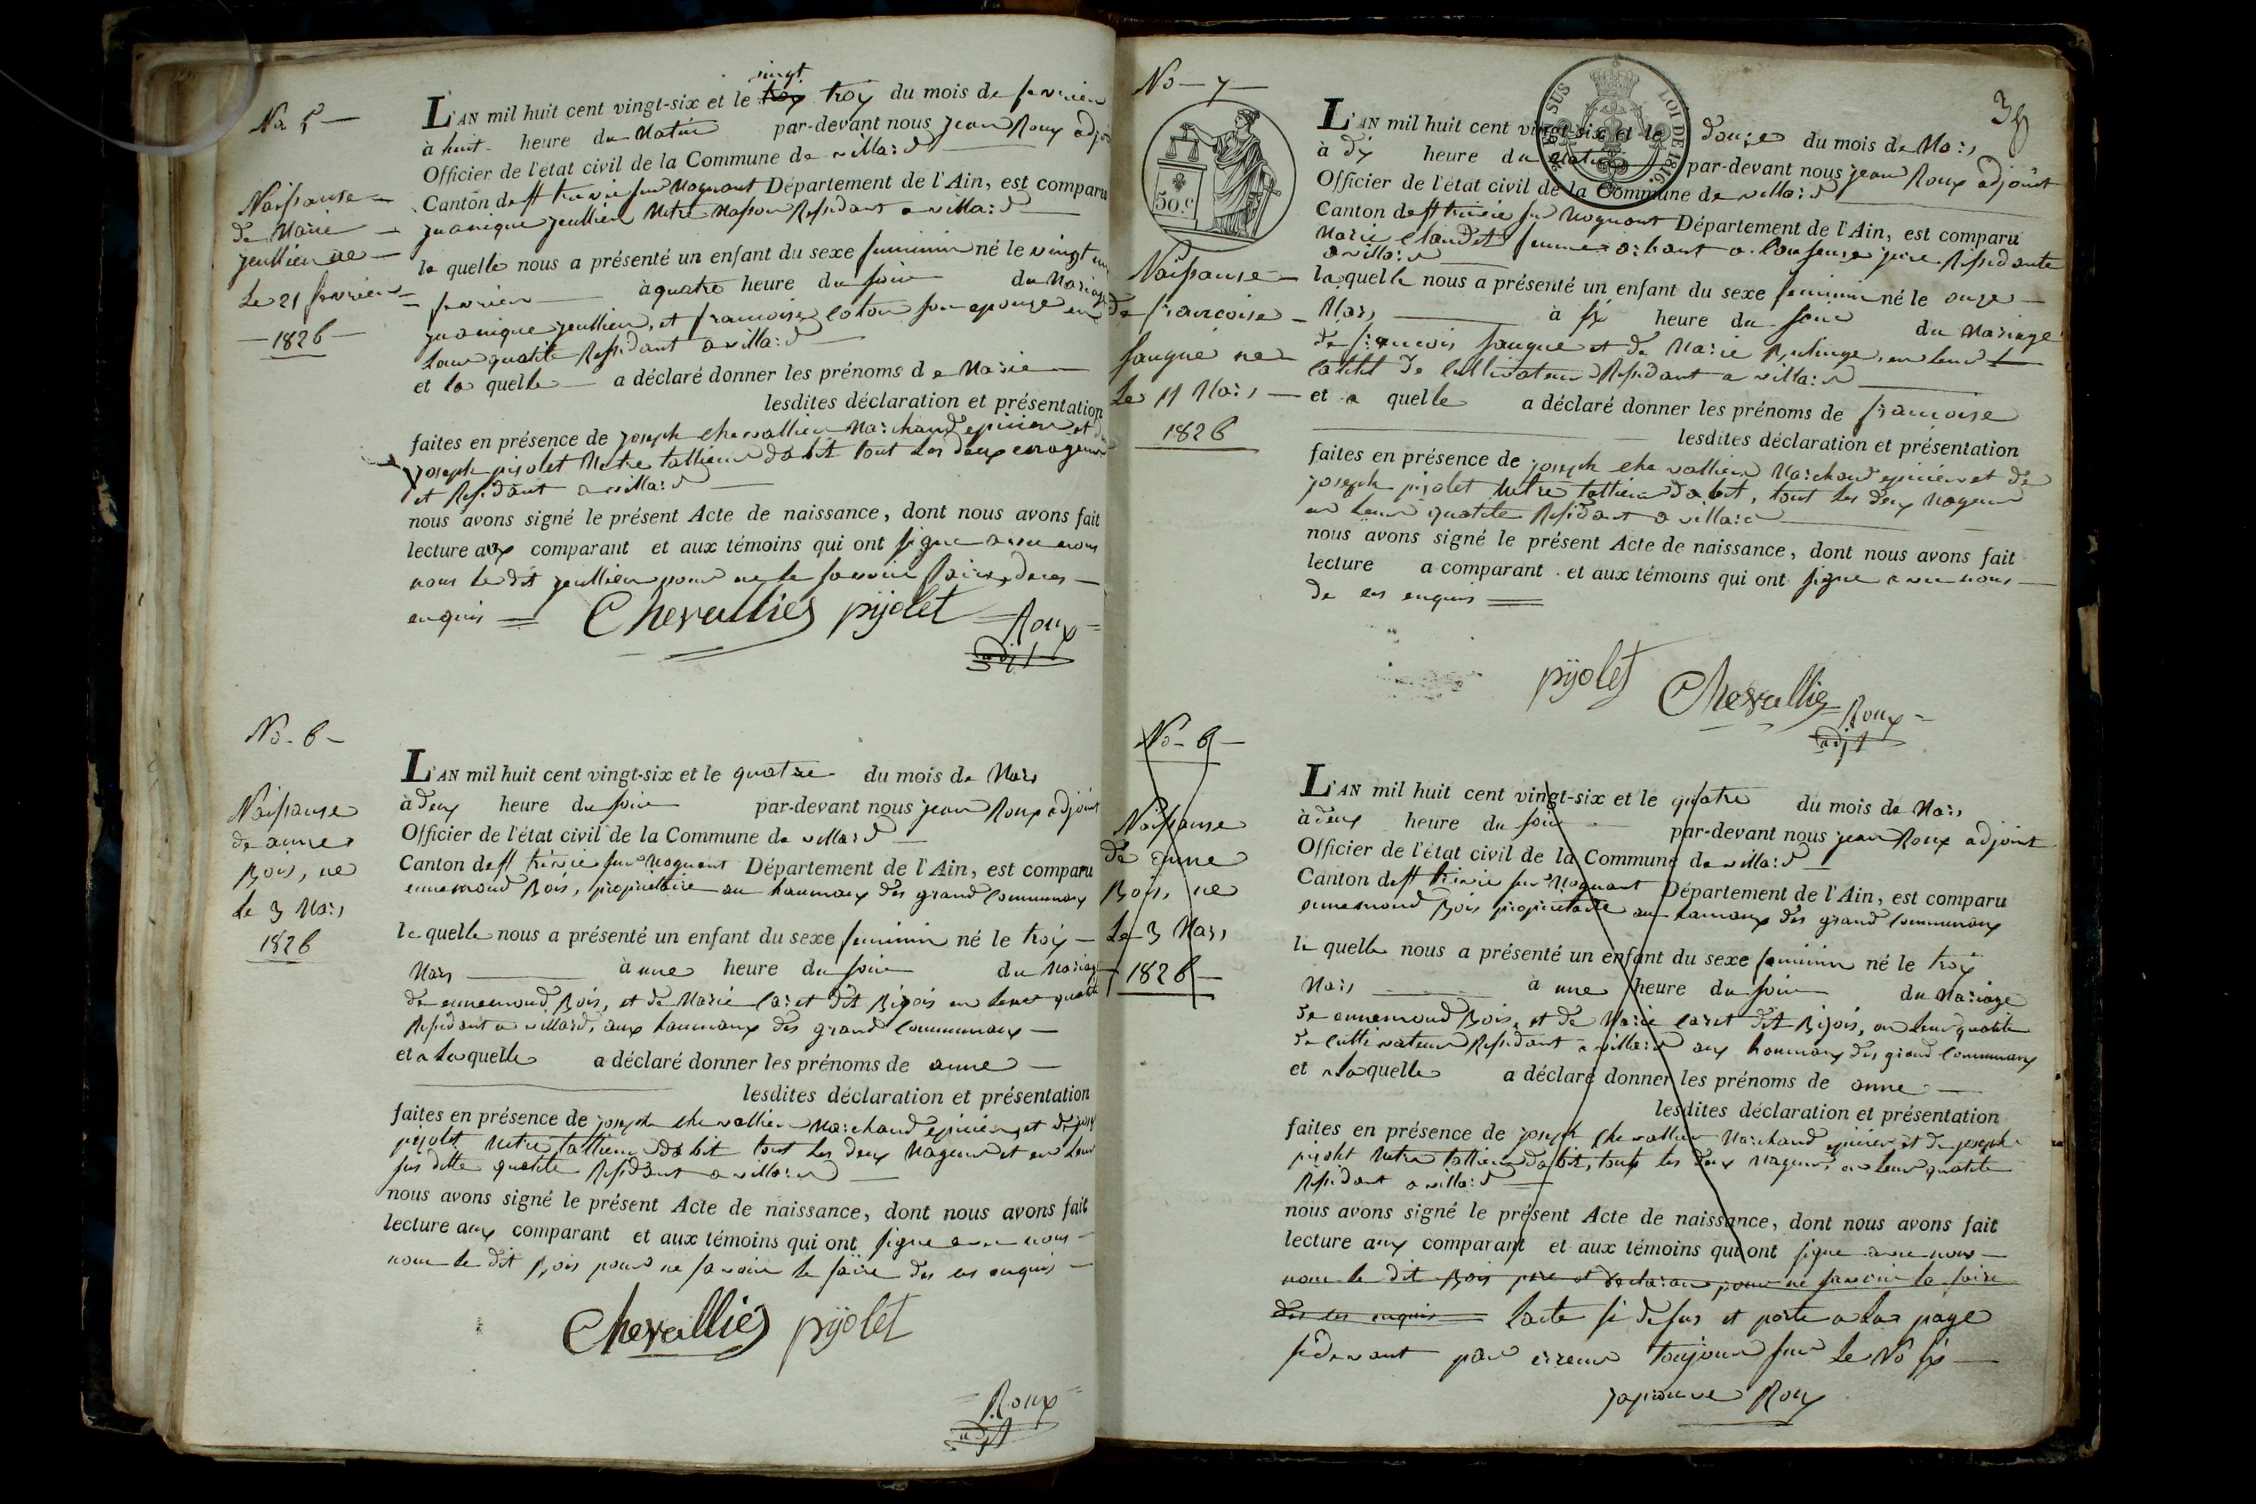 No 5 —
Naissance —
de Marie —
jeullien ne —
Le 21 fevrier —
— 1826 —
vingt
L'AN mil huit cent vingt-six et le troy troy du mois de fevrier
à huit heure du Matin par-devant nous jean Roux adj
Officier de l'état civil de la Commune de villard
Canton de st trivie sur Mognant Département de l'Ain, est comparu
jeullien Metre Masson Residant a villard
le quelle nous a présenté un enfant du sexe feminin né le vingt un
fevrier à quatre heure du soir du Mariage
jeullien, et francoise coton son epouze en
Leur qualite Residant a villard
et la quelle a déclaré donner les prénoms de Marie
lesdites déclaration et présentation
faites en présence de joseph chevallier Marchand epicier et de
joseph pijolet Metre tallieur dabit tout les deux
et Residant a villard
nous avons signé le présent Acte de naissance, dont nous avons fait
lecture aux comparant et aux témoins qui ont signe avec nous
non le dit jeullien pour ne le savoir faire de ces —
enquis Chevallier pijolet Roux
adjt
No - 6 —
Naissance
de anne
Bois, ne
Le 3 Mars
1826
L'AN mil huit cent vingt-six et le quatre du mois de Mars
à deux heure du soir par-devant nous jean Roux adjoint
Officier de l'état civil de la Commune de villard
Canton de st trivie sur Mognant Département de l'Ain, est comparu
ennemond Bois, proprietaire au haumaux des grand Communaux
le quelle nous a présenté un enfant du sexe feminin né le troy —
Mars à une heure du soir du Mariage
de ennemond Bois, et de Marie caret dit Bijois en leur qualite
Residant a villard, aux haumaux des grand Communaux —
et a laquelle a déclaré donner les prénoms de anne —
lesdites déclaration et présentation
faites en présence de joseph chevallier Marchand epicier, et de jose
pijolet Metre tallieur dabit tout les deux Mageur et en leur
sus ditte qualite Residant a villard
nous avons signé le présent Acte de naissance, dont nous avons fait
lecture aux comparant et aux témoins qui ont signe avec nous —
non le dit Bois pour ne savoir le faire des ces enquis —
Chevallier pijolet
Roux
adjt
No — 7 —
50.C
Naissance —
de francoise —
fauque ne
Le 11 Mars —
1826
EN SUS
LOI DE 1816
35
L'AN mil huit cent vingt-six et le douze du mois de Mars
à dix heure du Matin par-devant nous jean Roux adjoint
Officier de l'état civil de la Commune de villard
Canton de st trivie sur Mognant Département de l'Ain, est comparu
Marie femme Residante
a villard
laquelle nous a présenté un enfant du sexe feminin né le onze —
Mars à six heure du soir du Mariage
de francois fauque et de Marie en leur
calité de Cultivateur Residant a villard
et a quelle a déclaré donner les prénoms de francoise
lesdites déclaration et présentation
faites en présence de joseph chevallier Marchand epicier et de
joseph pijolet Metre tallieur dabit, tout les deux Mageur
en leur qualite Residant a villard
nous avons signé le présent Acte de naissance, dont nous avons fait
lecture a comparant et aux témoins qui ont signe avec nous —
de ces enquis
pijolet Chevallier Roux
adjt
No - 6 —
Naissance
de anne
Bois, ne
Le 3 Mars
1826
L'AN mil huit cent vingt-six et le quatre du mois de Mars
à deux heure du soir par-devant nous jean Roux adjoint
Officier de l'état civil de la Commune de villard
Canton de st trivie sur Mognant Département de l'Ain, est comparu
ennemond Bois proprietaire au hamaux des grand Communaux
le quelle nous a présenté un enfant du sexe feminin né le troy
Mars à une heure du soir du Mariage
de ennemond Bois, et de Marie caret dit Bijois, en leur qualite
de Cultivateur Residant a villard aux haumaux des grand Communaux
et a laquelle a déclaré donner les prénoms de anne —
lesdites déclaration et présentation
faites en présence de joseph chevallier Marchand epicier et de joseph
pijolet Metre tallieur dabit, tout les deux Mageur, en leur qualite
Residant a villard
nous avons signé le présent Acte de naissance, dont nous avons fait
lecture aux comparant et aux témoins qui ont signe avec nous —
non le dit Bois pere et declarant pour ne savoir le faire
des ces enquis Lacte si desus et porte a la page
sidevant par erreur toujour sur le No six —
japrouve Roux